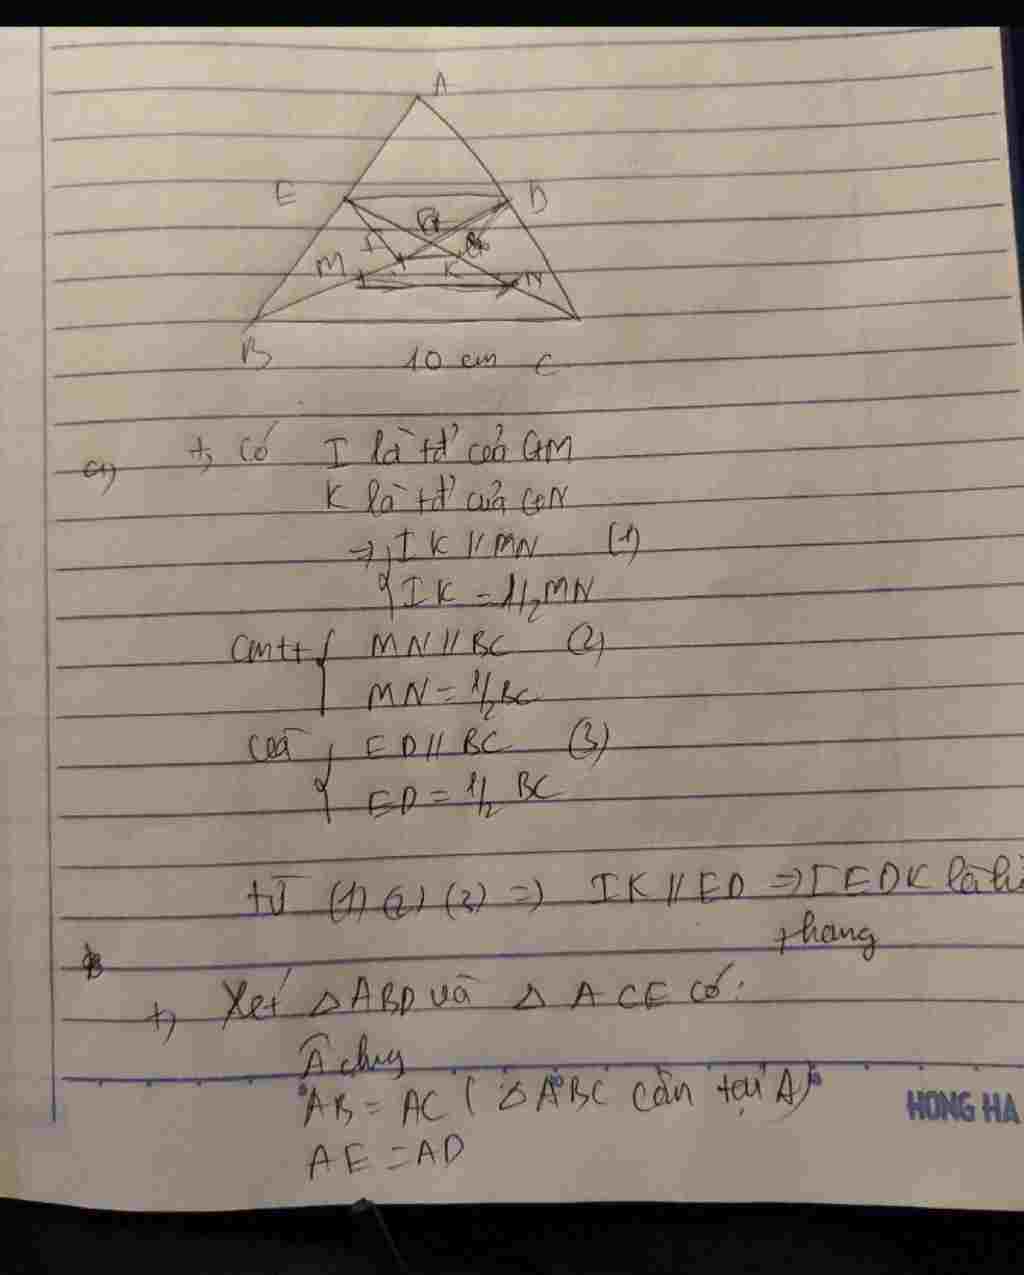 A
E
D
G
I
M
K
N
B
10 cm
C
a) +, Có I là tđ' của GM
K là tđ' của GN
=> { IK // MN (1)
IK = 1/2 MN
Cmtt { MN // BC (2)
MN = 1/2 BC
Có { ED // BC (3)
ED = 1/2 BC
từ (1) (2) (3) => IK // ED => IEDK là
thang
+, Xét △ ABD và △ ACE có:
Â chung
AB = AC ( △ ABC cân tại A)
AE = AD
HONG HA